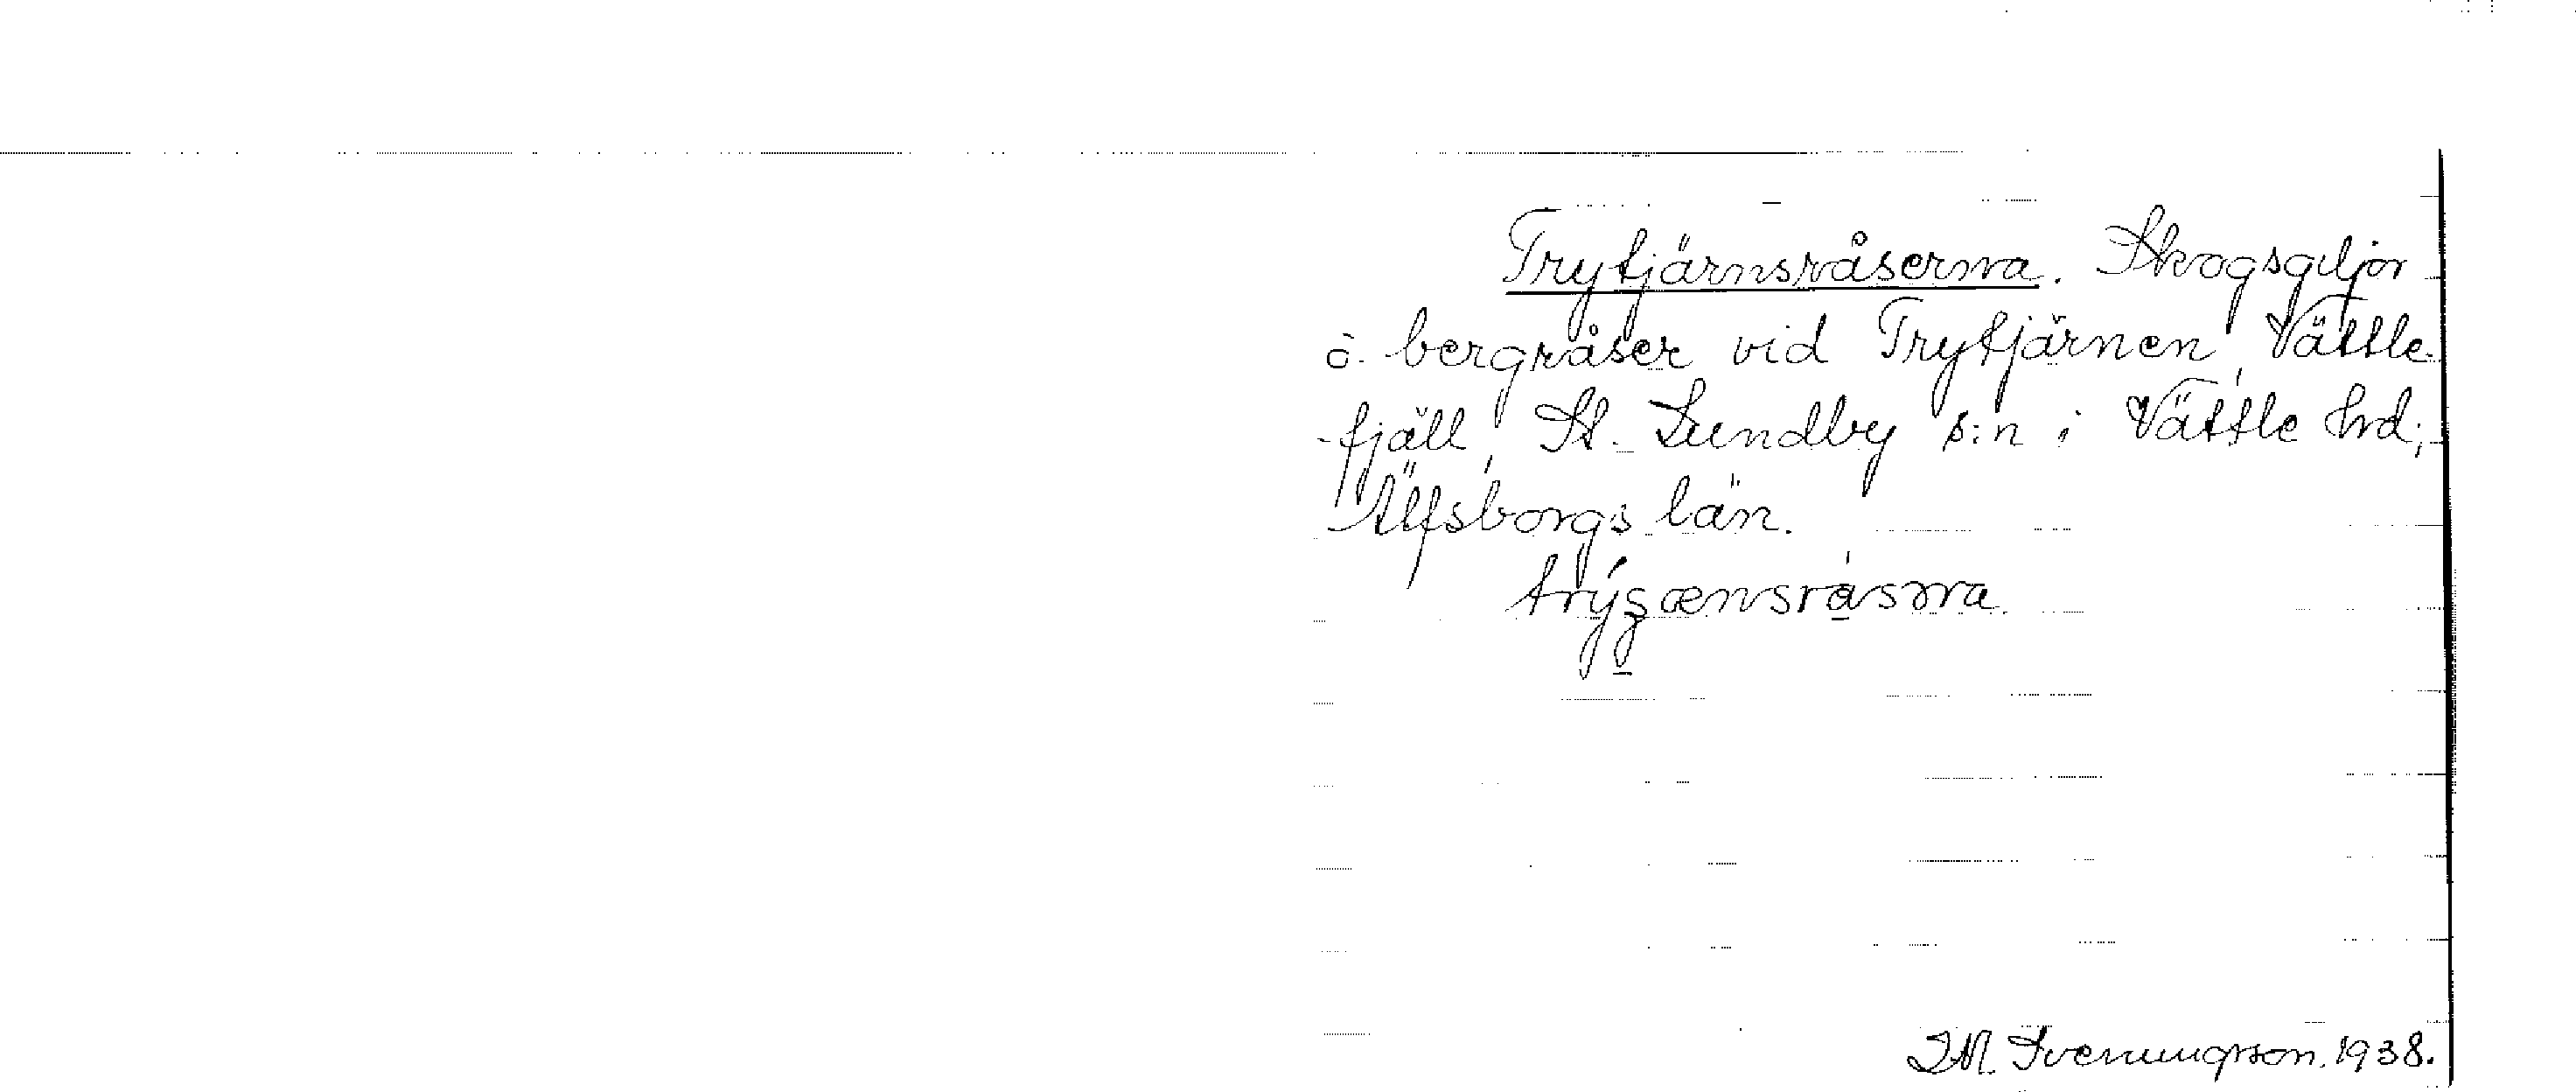 Trytjärnsråserna. Skogsgiljor
o. bergråser vid Trytjärnen, Vättle-
fjäll, St. Lundby s:n i Vättle hrd;
Älfsborgs län.
J.M. Svenungsson. 1938.